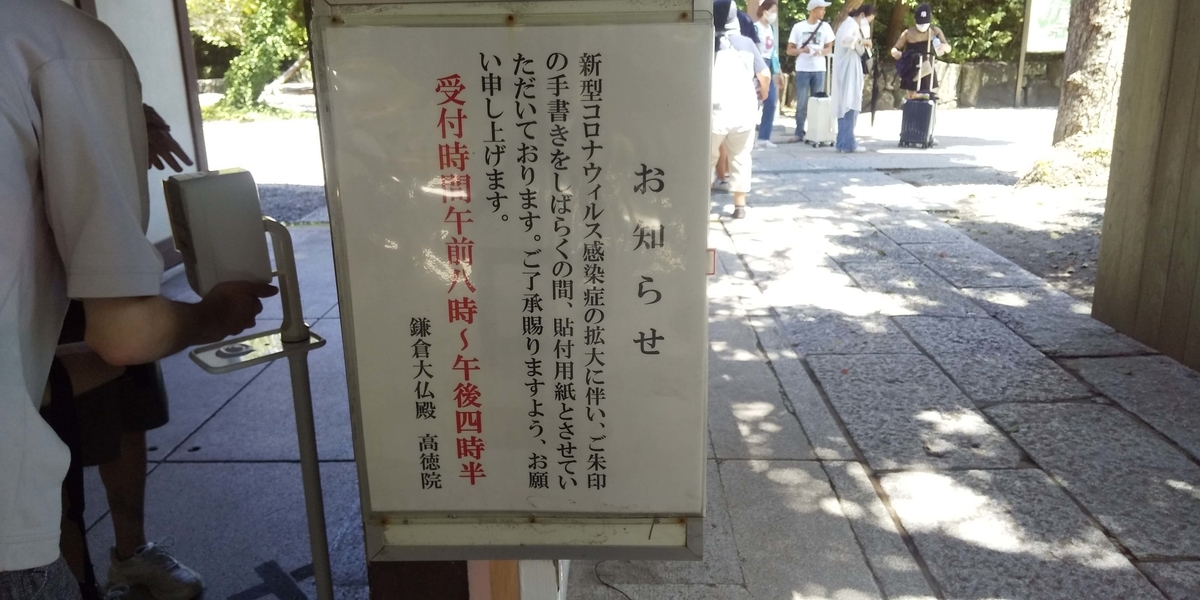 お知らせ
新型コロナウィルス感染症の拡大に伴い、ご朱印
の手書きをしばらくの間、貼付用紙とさせてい
ただいております。ご了承賜りますよう、お願
い申し上げます。
受付時間午前八時～午後四時半
鎌倉大仏殿 高徳院